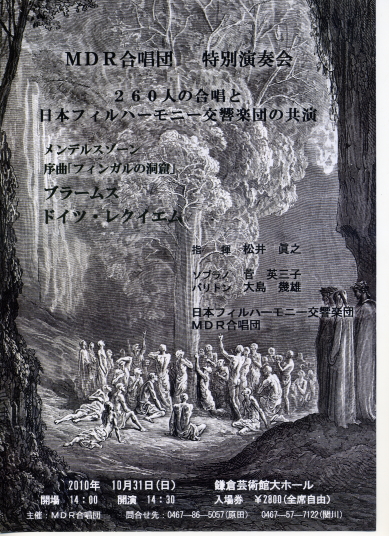 MDR合唱団　特別演奏会
260人の合唱と
日本フィルハーモニー交響楽団の共演
メンデルスゾーン
序曲「フィンガルの洞窟」
ブラームス
ドイツ・レクイエム
指　揮　松井　眞之
ソプラノ　菅　英三子
バリトン　大島　幾雄
日本フィルハーモニー交響楽団
MDR合唱団
2010年　10月31日(日)　鎌倉芸術館大ホール
開場　14:00　開演　14:30　入場券　¥2800(全席自由)
主催:MDR合唱団　問合せ先:0467-86-5057(原田)　0467-57-7122(関川)